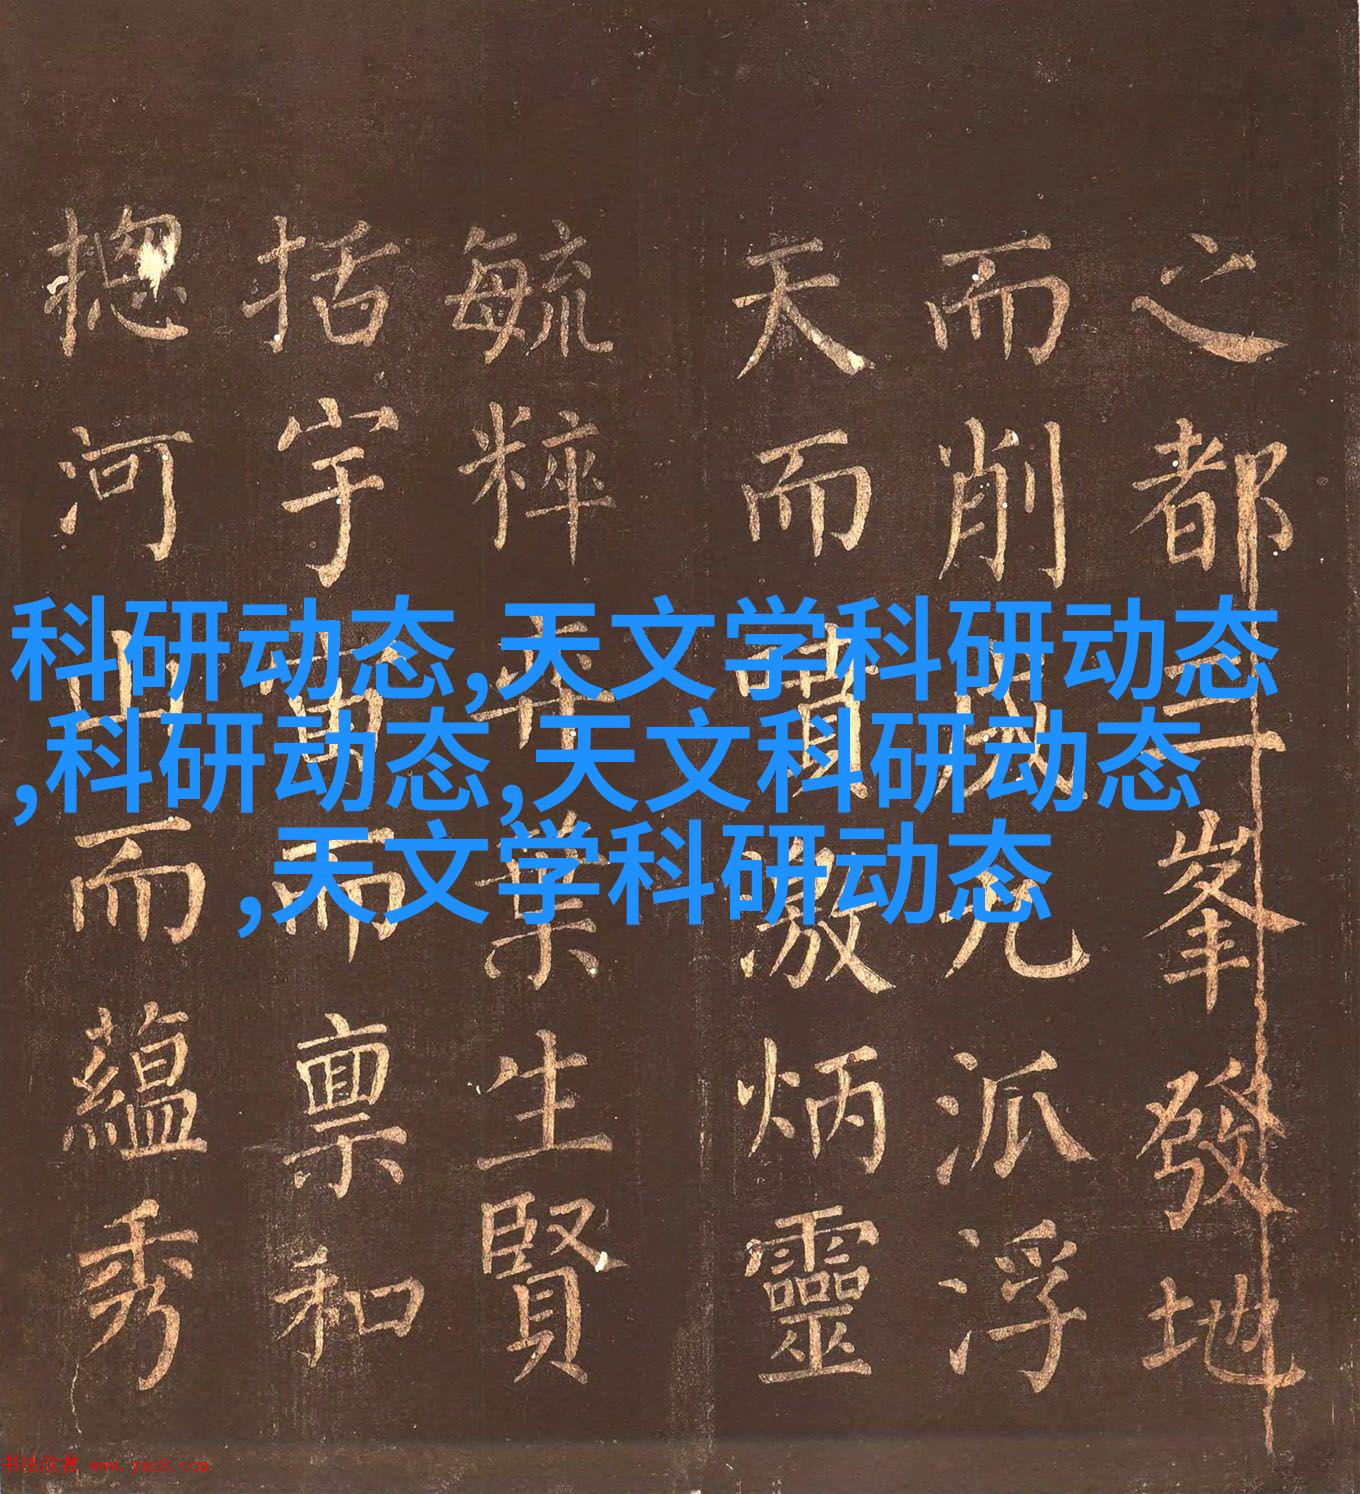 之都三峯發地
而削成九派浮
天而噴激炳靈
毓粹弈葉生賢
括宇宙而禀和
揔河山而蘊秀
科研动态,天文学科研动态
,科研动态,天文科研动态
,天文学科研动态
书法欣赏 www.yac8.com